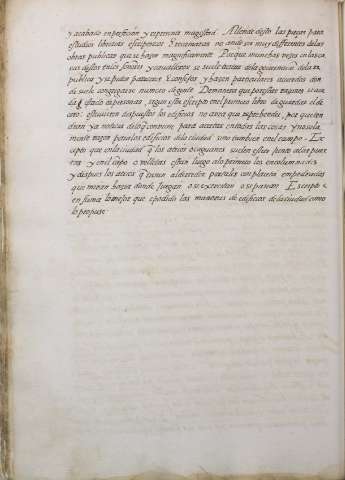 y acabado en perficion y espetima magestad. Allende desto las pieças para
estudios librerias escriptorios Recamaras no an de ser muy differentes de las
obras publicas que se hazen magnificamente Porque muchas vezes en las ca
sas destos tales señores y cavalleros se suele tratar de la governacion de la re
publica y se juntan particulares consejos y hazen particulares acuerdos don
de suele congregarse numero de gente De manera que por estas razones si ca
da estado de personas, segun esta escripto en el primero libro de guardar el de
coro: estuvieren dispuestos los edificios no avra que reprehender, por que ten
dran ya noticia de lo que conviene para acertar en todas las cosas y no sola
mente avran para los edificios de la ciudad sino tambien en el campo. Ex
cepto que en la ciudad los atrios suelen estar junto a las puer
tas y en el campo o villetas estan luego a lo primero los encolumnados
y despues los atrios que tienen al derredor portales con placetas empedradas
que miran hazia donde juegan o se exercitan o se pasean. Escripto e
en suma lo mejor que e podido las maneras de edificios de la ciudad como
lo propuse